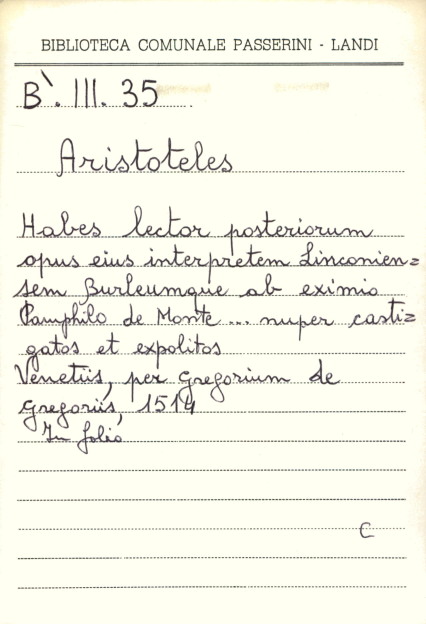 BIBLIOTECA COMUNALE PASSERINI - LANDI
B`. III. 35
Aristoteles
Habes lector posteriorum
opus eius interpretem Linconien=
sem Burleumque ab eximio
Pamphilo de Monte ... nuper casti=
gatos et expolitos
Venetiis, per Gregorium de
Gregoriis, 1514
In folio
C